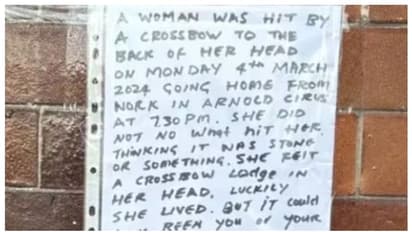 A WOMAN WAS HIT BY
A CROSSBOW TO THE
BACK OF HER HEAD
ON MONDAY 4TH MARCH
2024 GOING HOME FROM
WORK IN ARNOLD CIRUS
AT 7.30 PM. SHE DID
NOT NO WHAT HIT HER.
THINKING IT WAS STONE
OR SOMETHING. SHE FELT
A CROSSBOW LODGE IN
HER HEAD. LUCKILY
SHE LIVED. BUT IT COULD
BEEN YOU OF YOUR